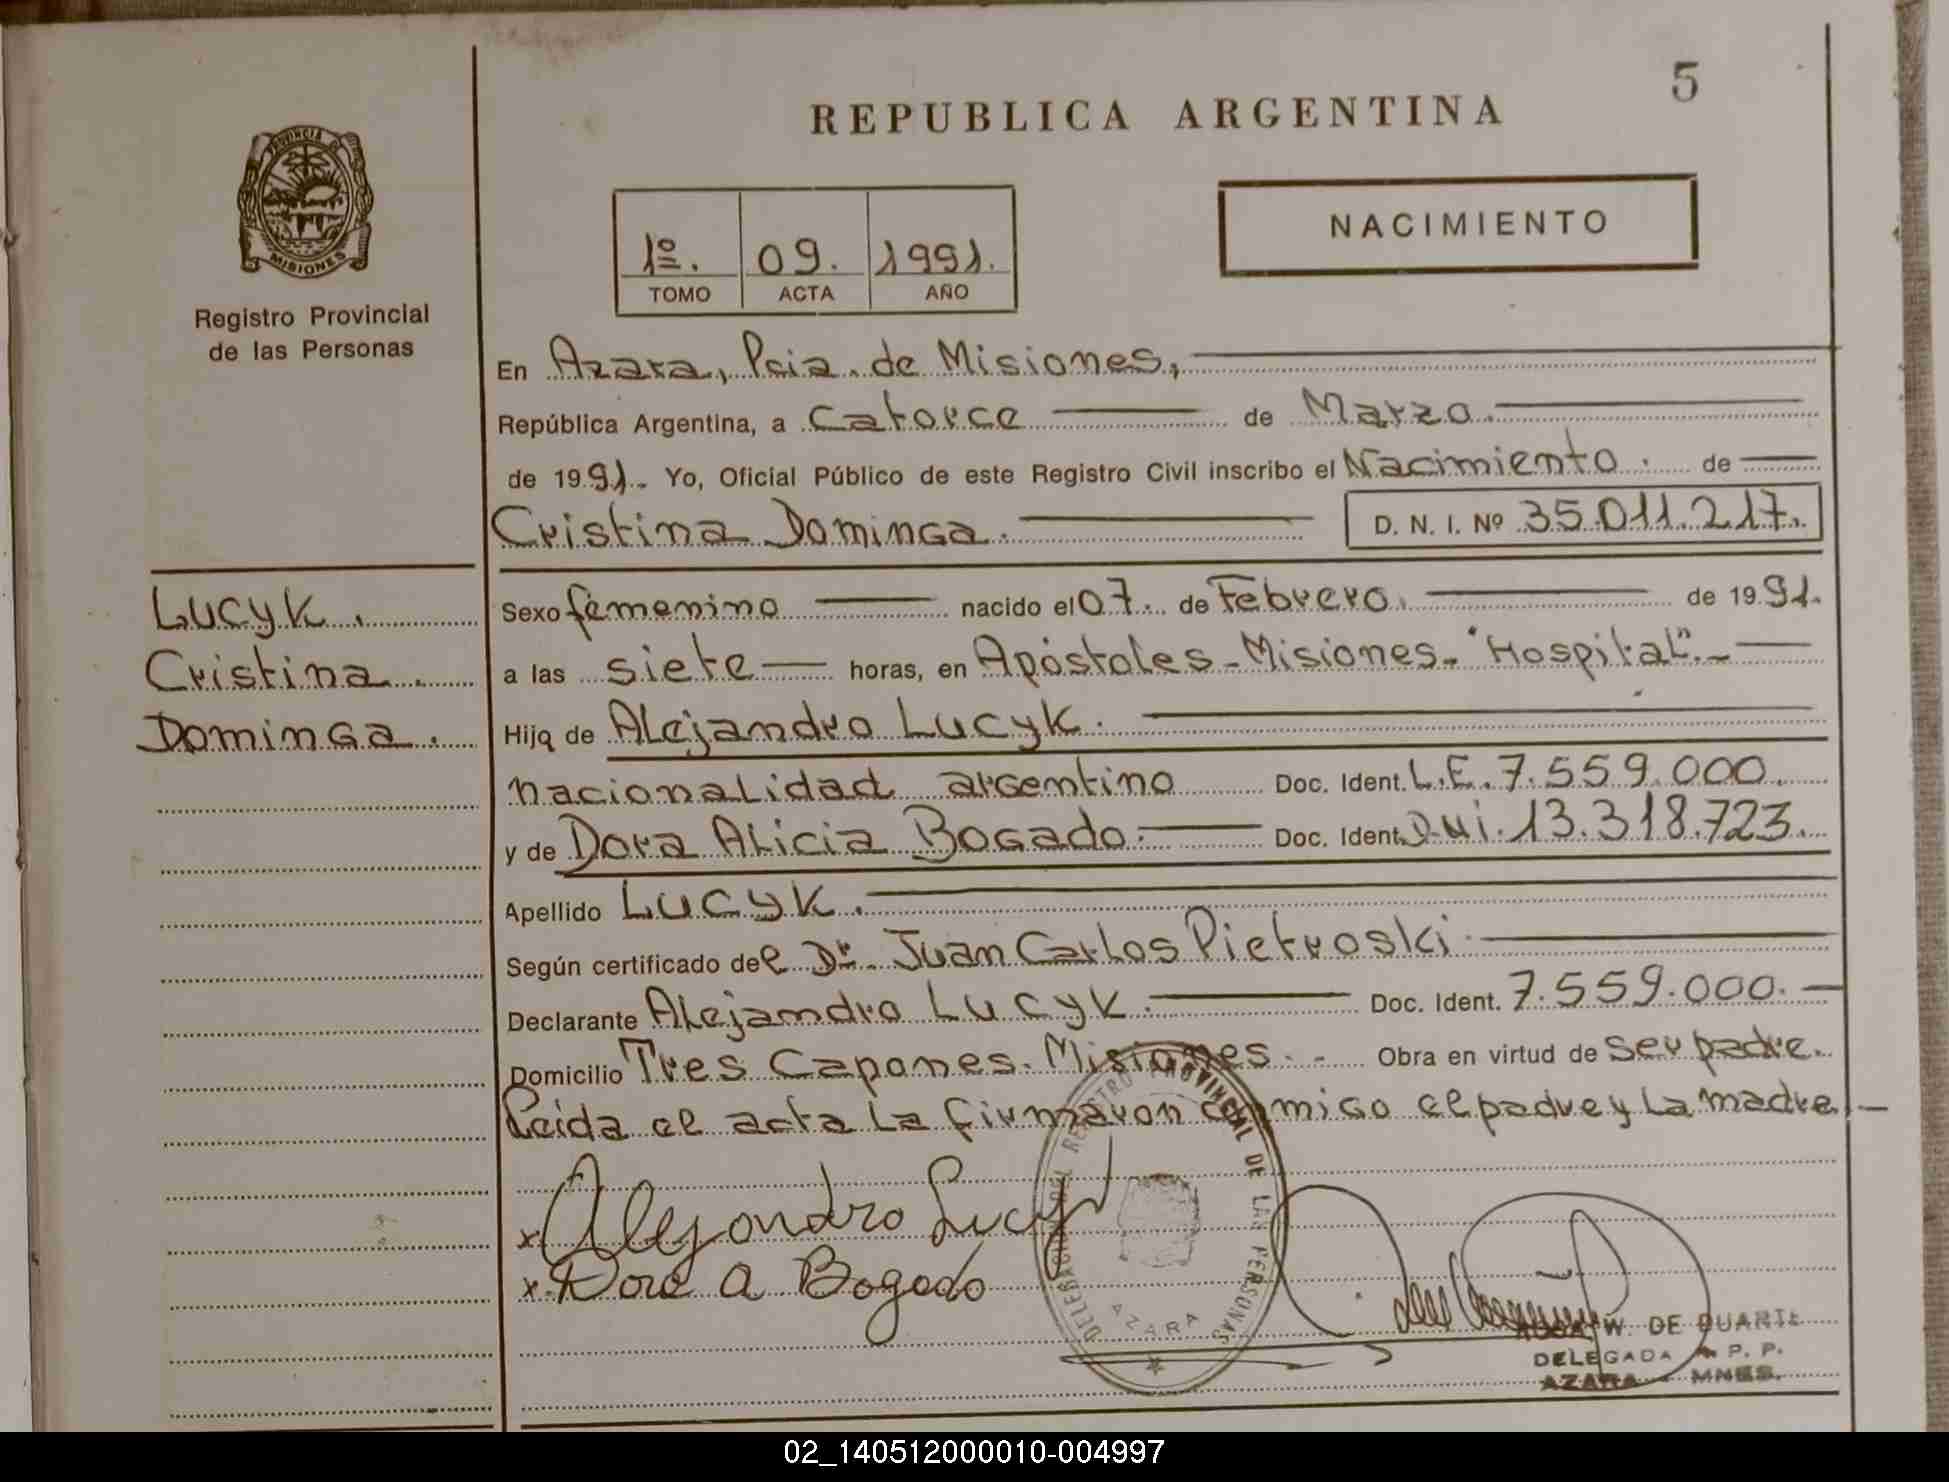 5
REPUBLICA ARGENTINA
PROVINCIA DE
MISIONES
Registro Provincial
de las Personas
NACIMIENTO
1º. 09. 1991.
TOMO ACTA AÑO
En Azara, Pcia. de Misiones,
República Argentina, a Catorce de Marzo.
de 1991. Yo, Oficial Público de este Registro Civil inscribo el Nacimiento. de
Cristina Dominga. D. N. I. Nº 35.011.217.
Lucyk.
Cristina
Dominga.
Sexo femenino nacido el 07. de Febrero. de 1991.
a las siete horas, en Apóstoles-Misiones-"Hospital".-
Hija de Alejandro Lucyk.
nacionalidad argentino Doc. Ident. L.E. 7.559.000.
y de Dora Alicia Bogado. Doc. Ident. D.N.I. 13.318.723.
Apellido Lucyk.
Según certificado del Dr. Juan Carlos Pietroski.
Declarante Alejandro Lucyk. Doc. Ident. 7.559.000.-
Domicilio Tres Capones. Misiones.- Obra en virtud de ser padre.
Leída el acta la firmaron conmigo el padre y la madre.-
x Alejandro Lucyk
x Dora A Bogado
DELEGACION DEL REGISTRO PROVINCIAL DE LAS PERSONAS
AZARA
W. DE DUARTE
DELEGADA R. P. P.
AZARA - MNES.
02_140512000010-004997